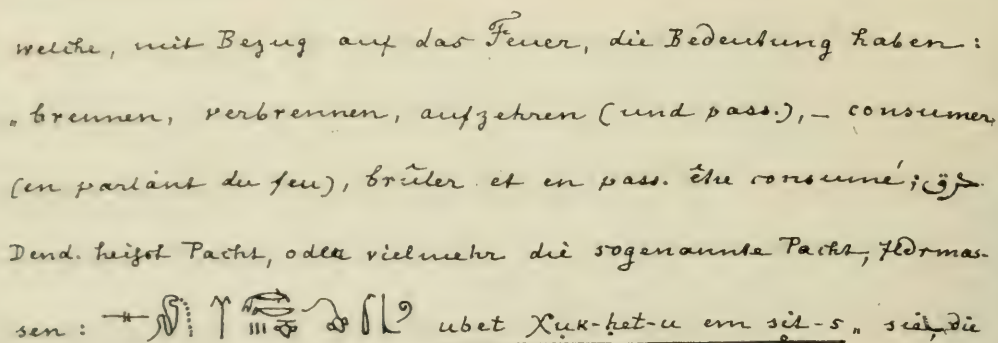 welche, mit Bezug auf das Feuer, die Bedeutung haben:
„brennen, verbrennen, aufzehren (und pass.), – consumer
(en parlant du feu), brûler et en pass. être consumé; حرق
Dend. heißt Pacht, oder vielmehr die sogenannte Pacht,
sen: ubet χuk-ḥet-u em sit-s „ sie, die